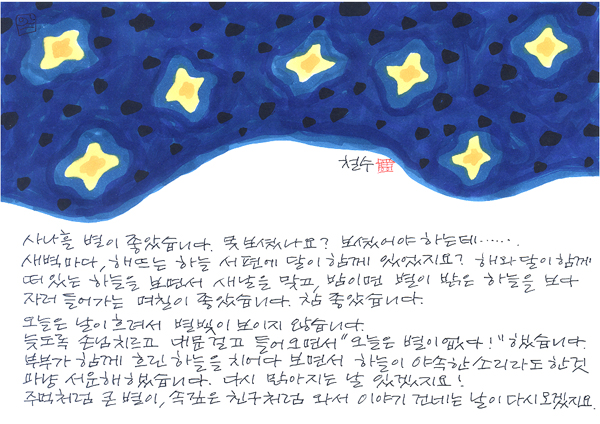 철수
사나흘 별이 좋았습니다. 못 보셨나요? 보셨어야 하는데…….
새벽마다, 해뜨는 하늘 서편에 달이 함께 있었지요? 해와 달이 함께
떠 있는 하늘을 보면서 새날을 맞고, 밤이면 별이 밝은 하늘을 보다
자러 들어가는 며칠이 좋았습니다. 참 좋았습니다.
오늘은 날이 흐려서 별빛이 보이지 않습니다.
늦도록 손님치르고 대문 걸고 들어오면서 "오늘은 별이 없다!" 했습니다.
부부가 함께 흐린 하늘을 치어다 보면서 하늘이 야속한 소리라도 한것
마냥 서운해 했습니다. 다시 맑아지는 날 있겠지요!
주먹처럼 큰 별이, 속깊은 친구처럼 와서 이야기 건네는 날이 다시 오겠지요.